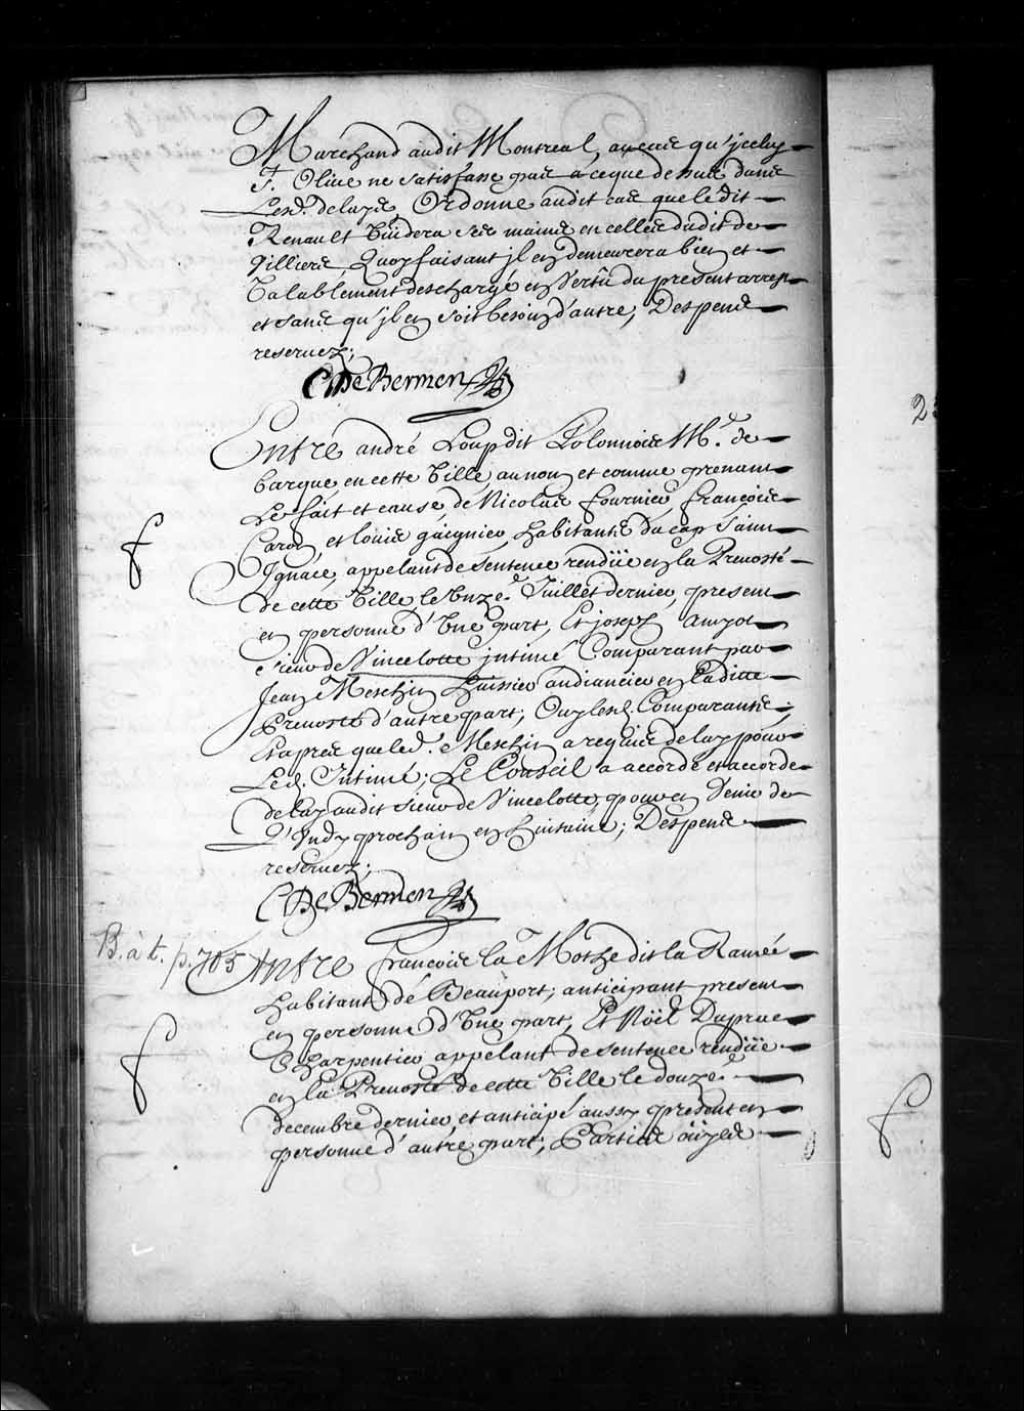 Marchand audit Montreal, au cas qu'jceluy
F. Oliue ne satisfasse pas a ce que dessus dans
Lesd. delays, Ordonne audit cas que le dit
Renault Vuidera ses mains en celles dudit de
Villiers, Quoy faisant jl en demeurera bien et
Valablement deschargé en Vertu du present arrest
et sans qu'jl en soit besoin d'autre, Despens
reseruez;
C DeBermen
Entre andré Loup dit Polonnois Me. de
barque, en cette Ville, au nom et comme prenant
Le fait et cause, de Nicolas fournier, françois
Caron, et loüis gaignier, habitants du cap Saint
Ignace, appelant de sentence rendüe en la Preuosté
de cette Ville, le Onze. Juillet dernier, present
en personne d'Vne part, Et joseph amyot
sieur de Vincelotte jntimé Comparant par
Jean Meschin huissier audiancier en Ladite
Preuosté d'autre part; Ouy lesd. Comparants,
Et apres que led. Meschin a requis delay pour
Led. Intimé; Le Conseil a accordé et accorde
delay audit sieur de Vincelotte, pour en Venir de
L'undy prochain en huitaine; Despens
reseruez;
C DeBermen
B. à t. p. 705
Entre françois la Mothe dit la Ramée
habitant de Beauport; anticipant present
en personne d'Vne part, Et Nöel Duprac
Charpentier appelant de sentence rendüe
en la Preuosté de cette Ville le douze.
decembre dernier, et anticipé aussy present en
personne d'autre part; Parties oüyes